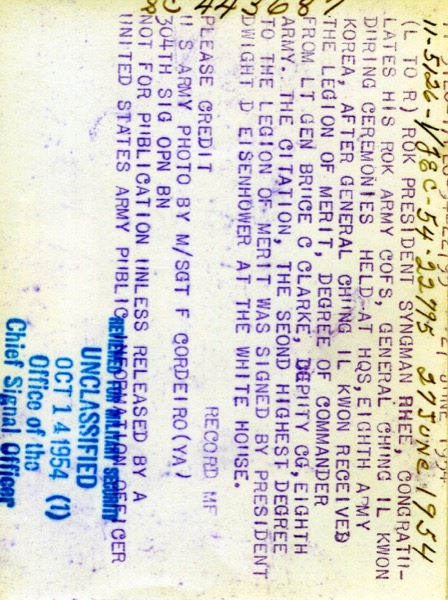 11-5126-1/FEC-54-22795 27 JUNE 1954
(L TO R) ROK PRESIDENT SYNGMAN RHEE, CONGRATU-
LATES HIS ROK ARMY COFS, GENERAL CHUNG IL KWON
DURING CEREMONIES HELD AT HQS, EIGHTH ARMY
KOREA, AFTER GENERAL CHUNG IL KWON RECEIVED
THE LEGION OF MERIT, DEGREE OF COMMANDER
FROM LT GEN BRUCE C CLARKE, DEPUTY CG EIGHTH
ARMY. THE CITATION, THE SEOND HIGHEST DEGREE
TO THE LEGION OF MERIT WAS SIGNED BY PRESIDENT
DWIGHT D EISENHOWER AT THE WHITE HOUSE.
PLEASE CREDIT RECORD MF
U S ARMY PHOTO BY M/SGT F CORDEIRO(YA)
304TH SIG OPN BN
NOT FOR PUBLICATION UNLESS RELEASED BY A
UNITED STATES ARMY PUBLIC INFORMATION OFFICER
REVIEWED FOR MILITARY SECURITY
UNCLASSIFIED
OCT 14 1954 (1)
Office of the
Chief Signal Officer